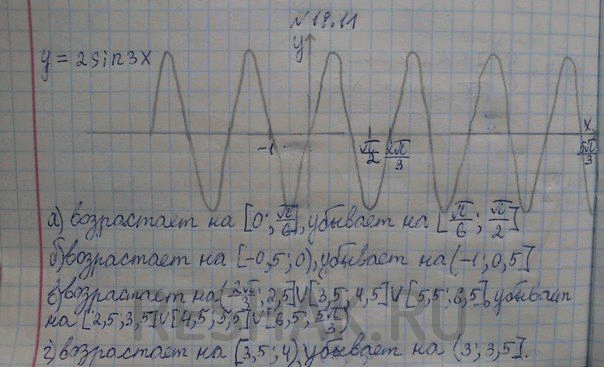 № 18.11
y
y = 2sin3x
x
-1
π/2
2π/3
5π/3
а) возрастает на [0; π/6], убывает на [π/6; π/2]
б) возрастает на [-0,5; 0), убывает на (-1; 0,5]
в) возрастает на (2π/3; 2,5] ∪ [3,5; 4,5] ∪ [5,5; 6,5], убывает
на [2,5; 3,5] ∪ [4,5; 5,5] ∪ [6,5; 5π/3)
г) возрастает на [3,5; 4), убывает на (3; 3,5].
RESHAK.RU